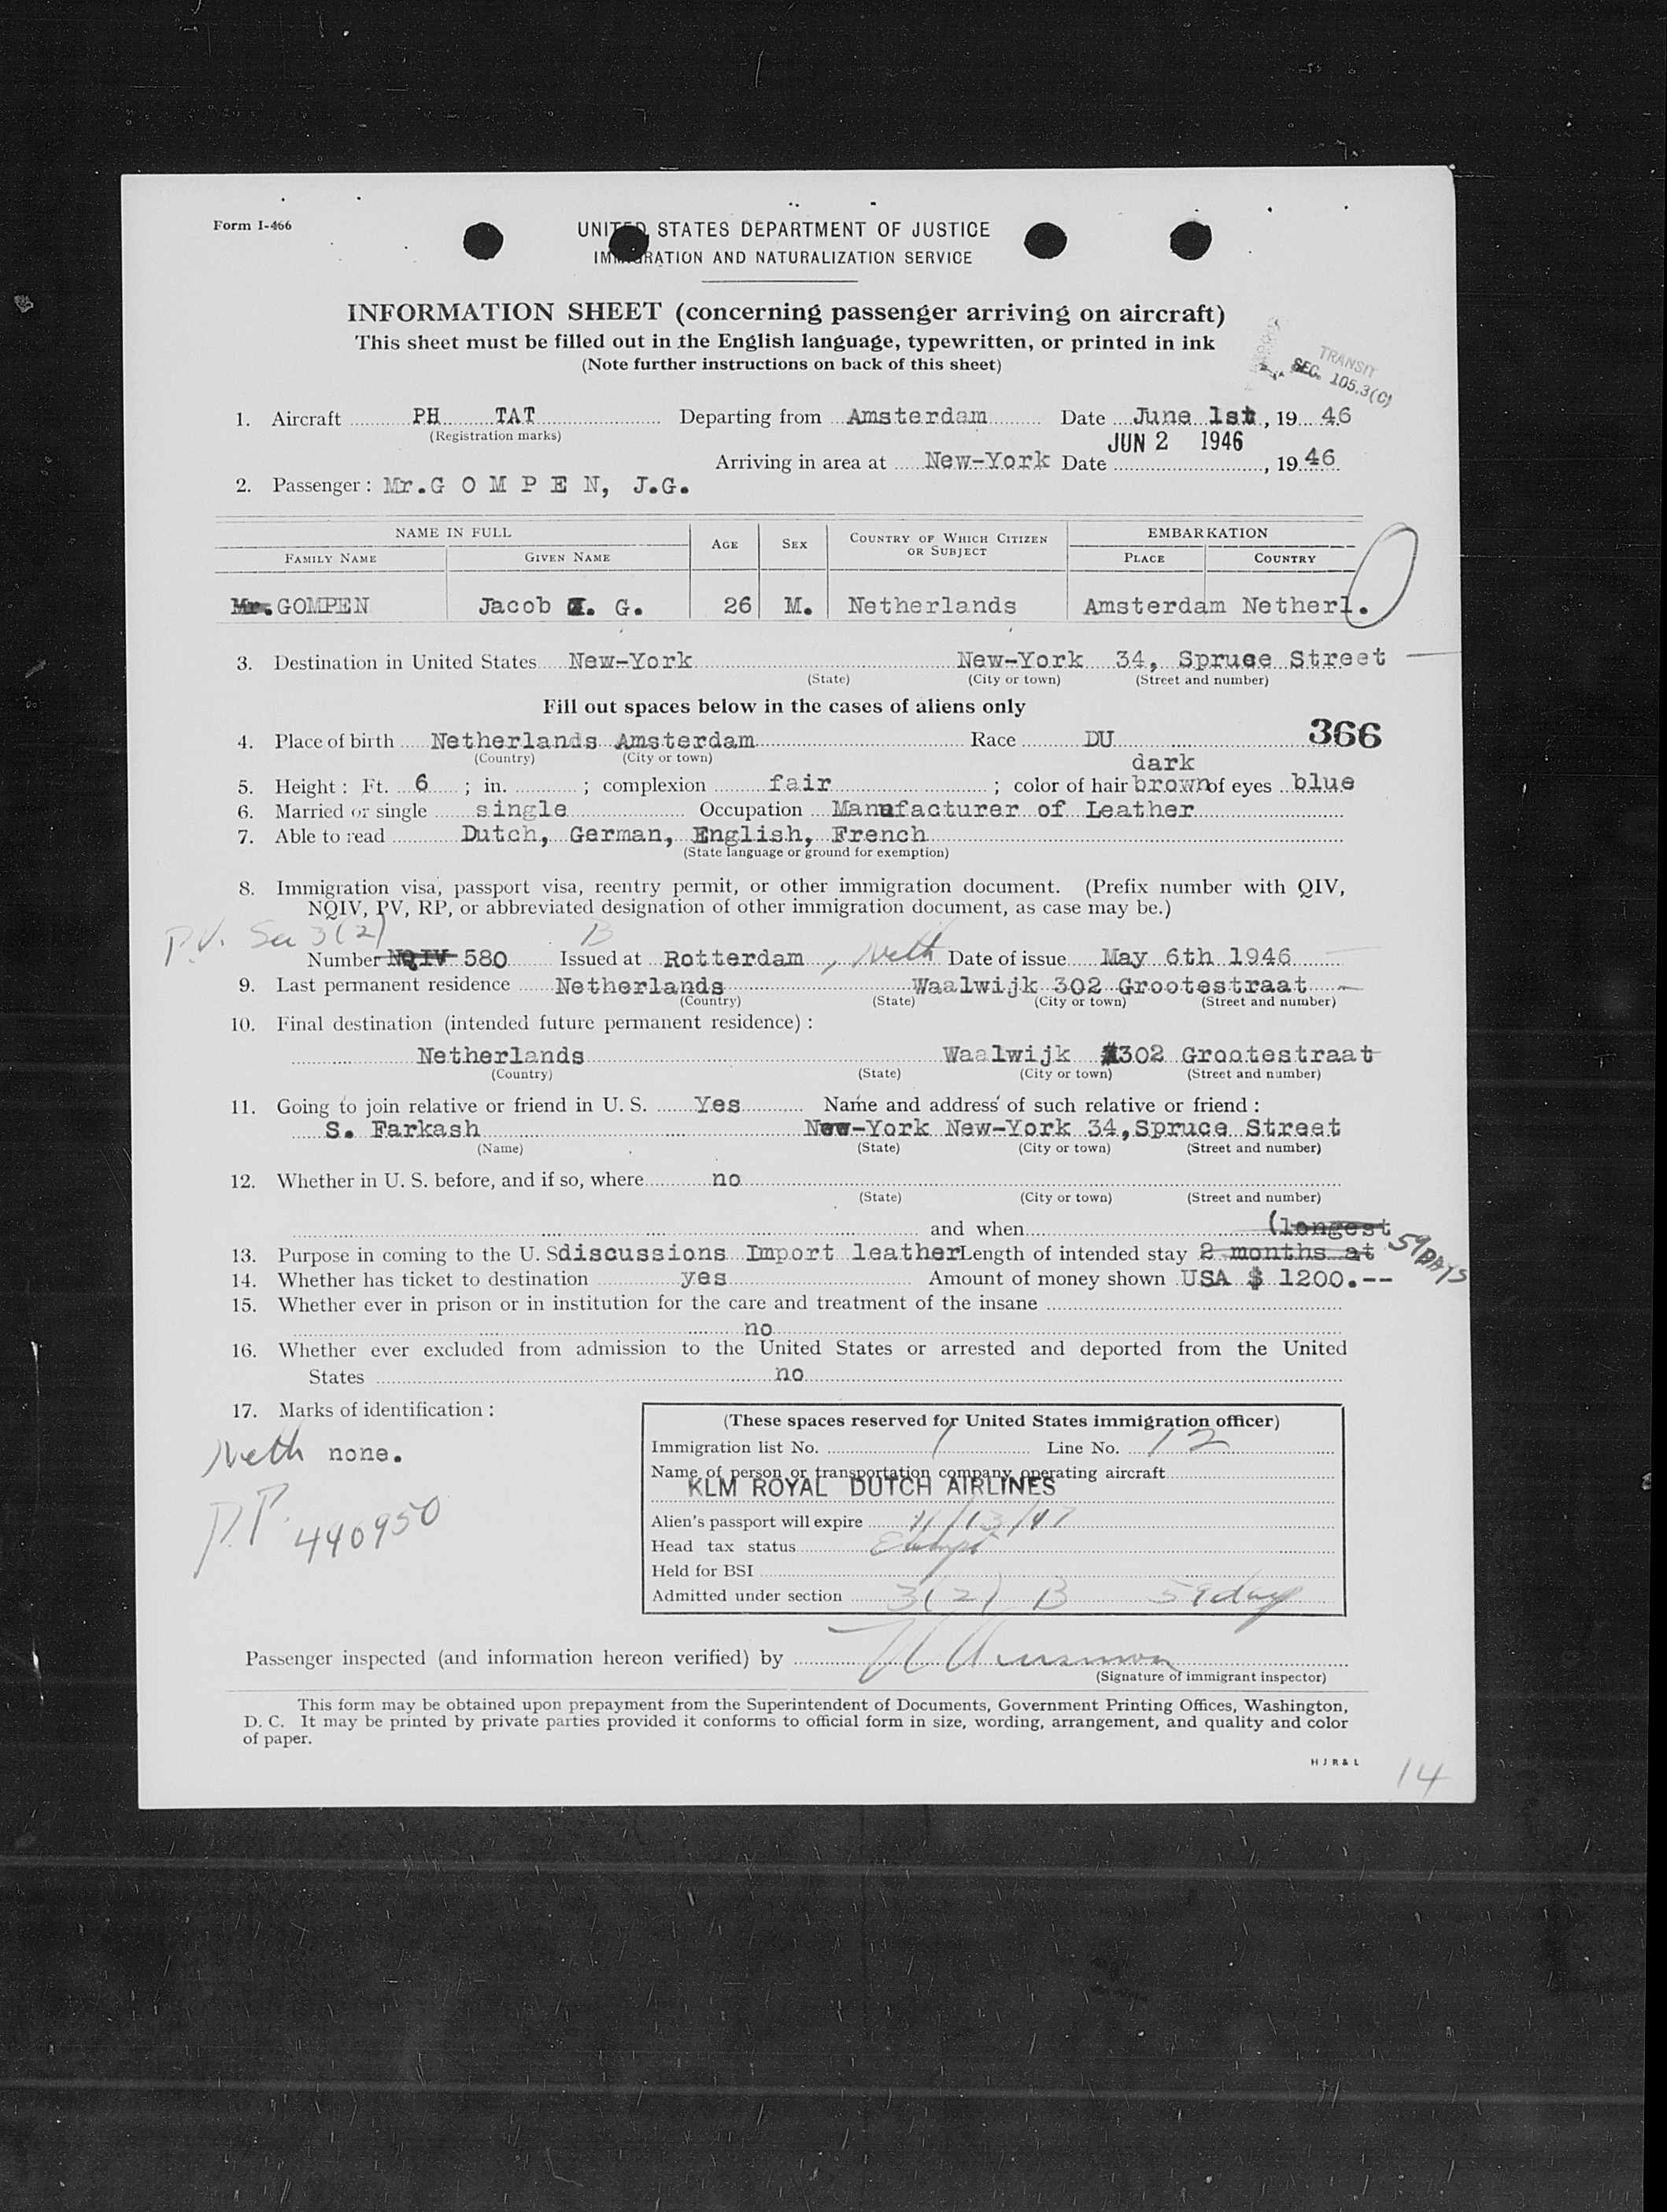 Form I-466
UNITED STATES DEPARTMENT OF JUSTICE
IMMIGRATION AND NATURALIZATION SERVICE
INFORMATION SHEET (concerning passenger arriving on aircraft)
This sheet must be filled out in the English language, typewritten, or printed in ink
(Note further instructions on back of this sheet)
TRANSIT
SEC. 105.3(C)
1. Aircraft PH TAT Departing from Amsterdam Date June 1st, 19 46
(Registration marks)
JUN 2 1946
Arriving in area at New-York Date , 19 46
2. Passenger: Mr.G O M P E N, J.G.
NAME IN FULL AGE SEX COUNTRY OF WHICH CITIZEN OR SUBJECT EMBARKATION
FAMILY NAME GIVEN NAME PLACE COUNTRY
Mr. GOMPEN Jacob G. 26 M. Netherlands Amsterdam Netherl.
3. Destination in United States New-York New-York 34, Spruce Street
(State) (City or town) (Street and number)
Fill out spaces below in the cases of aliens only
366
4. Place of birth Netherlands Amsterdam Race DU
(Country) (City or town)
dark
5. Height: Ft. 6 ; in. ; complexion fair ; color of hair brown of eyes blue
6. Married or single single Occupation Manufacturer of Leather
7. Able to read Dutch, German, English, French
(State language or ground for exemption)
8. Immigration visa, passport visa, reentry permit, or other immigration document. (Prefix number with QIV,
NQIV, PV, RP, or abbreviated designation of other immigration document, as case may be.)
P.V. Sec 3(2) B
Number NQIV 580 Issued at Rotterdam, Neth Date of issue May 6th 1946
9. Last permanent residence Netherlands Waalwijk 302 Grootestraat
(Country) (State) (City or town) (Street and number)
10. Final destination (intended future permanent residence):
Netherlands Waalwijk 302 Grootestraat
(Country) (State) (City or town) (Street and number)
11. Going to join relative or friend in U. S. Yes Name and address of such relative or friend:
S. Farkash New-York New-York 34,Spruce Street
(Name) (State) (City or town) (Street and number)
12. Whether in U. S. before, and if so, where no
(State) (City or town) (Street and number)
and when (longest
13. Purpose in coming to the U. S discussions Import leather Length of intended stay 2 months at 59 DAYS
14. Whether has ticket to destination yes Amount of money shown USA $ 1200.--
15. Whether ever in prison or in institution for the care and treatment of the insane
no
16. Whether ever excluded from admission to the United States or arrested and deported from the United
States no
17. Marks of identification:
Neth none.
P.P. 440950
(These spaces reserved for United States immigration officer)
Immigration list No. 1 Line No. 12
Name of person or transportation company operating aircraft
KLM ROYAL DUTCH AIRLINES
Alien's passport will expire 11/13/47
Head tax status Exempt
Held for BSI
Admitted under section 3(2) B 59 days
Passenger inspected (and information hereon verified) by
(Signature of immigrant inspector)
This form may be obtained upon prepayment from the Superintendent of Documents, Government Printing Offices, Washington,
D. C. It may be printed by private parties provided it conforms to official form in size, wording, arrangement, and quality and color
of paper.
H J R & L
14